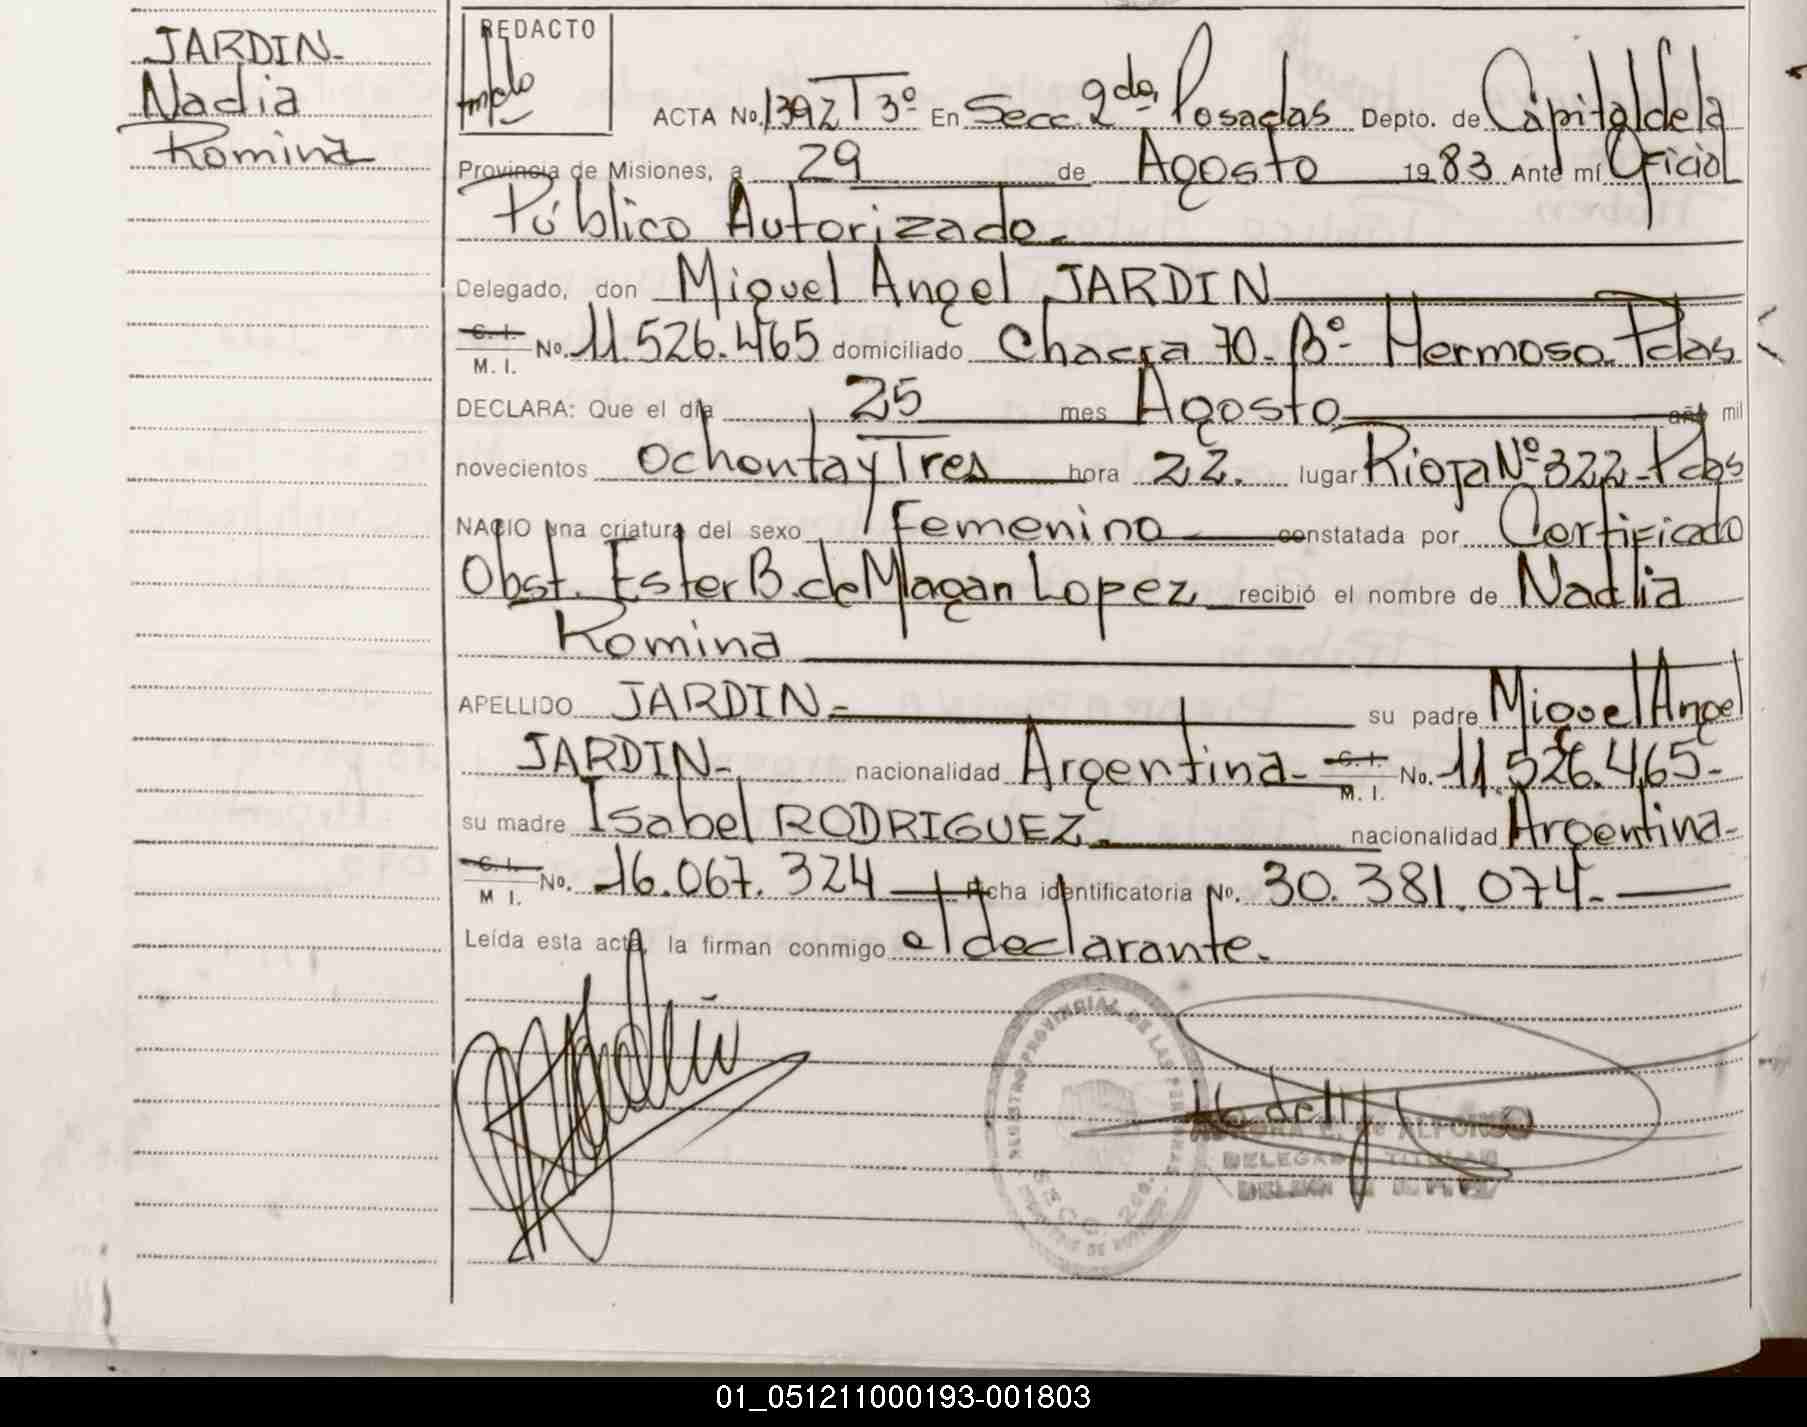 JARDIN-
Nadia
Romina
REDACTO
ACTA No. 1392 T 3º En Secc. 2da, Posadas Depto. de Capital de la
Provincia de Misiones, a 29 de Agosto 1983 Ante mí Oficial
Público Autorizado.
Delegado, don Miguel Angel JARDIN
C. I.
M. I. No. 11.526.465 domiciliado Chacra 70. Bº- Hermoso. Pdas
DECLARA: Que el día 25 mes Agosto año mil
novecientos Ochenta y Tres hora 22. lugar Rioja Nº 322-Pdas
NACIO una criatura del sexo Femenino constatada por Certificado
Obst. Ester B. de Magan Lopez recibió el nombre de Nadia
Romina
APELLIDO JARDIN- su padre Miguel Angel
JARDIN- nacionalidad Argentina- C. I.
M. I. No. 11.526.465-
su madre Isabel RODRIGUEZ. nacionalidad Argentina-
C. I.
M I. No. 16.067.324 Ficha identificatoria No. 30.381.074.-
Leída esta acta, la firman conmigo el declarante.
REGISTRO PROVINCIAL DE LAS PERSONAS
SECC. 2da.
DE ALFONSO
DELEGADA TITULAR
01_051211000193-001803